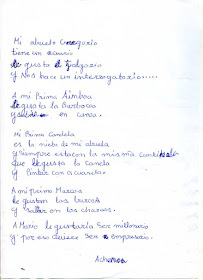 Mi abuelo Gregorio
tiene un
le gusta el
y Nos hace un interrogatorio.....
A mi Prima Ainhoa
le gusta la Barbacoa
y en casa.
Mi Prima Candela
es la nieta de mi abuela
y siempre esta con la misma
que le gusta la canela
y Pintar con acuarela
A mi primo Marcos
le gustan los barcos
y saltar en los charcos.
A Mario le gustaría Ser millonario
y por eso quiere Ser empresario.